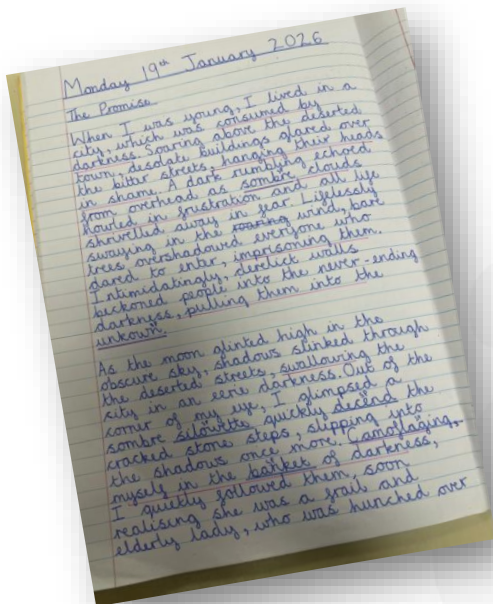 Monday 19th January 2026
The Promise
When I was young, I lived in a
city, which was consumed by
darkness. Soaring above the deserted
town, desolate buildings glared over
the bitter streets, hanging their heads
in shame. A dark rumbling echoed
from overhead as sombre clouds
howled in frustration and all life
shrivelled away in fear. Lifelessly
swaying in the roaring wind, bare
trees, overshadowed everyone who
dared to enter, imprisoning them.
Intimidatingly, derelict walls
beckoned people into the never-ending
darkness, pulling them into the
unkown.
As the moon glinted high in the
obscure sky, shadows slinked through
the deserted streets, swallowing the
city in an eerie darkness. Out of the
corner of my eye, I glimpsed a
sombre silouette quickly decend the
cracked stone steps, slipping into
the shadows once more. Camoflaging,
myself in the banket of darkness,
I quietly followed them, soon
realising she was a frail and
elderly lady, who was hunched over